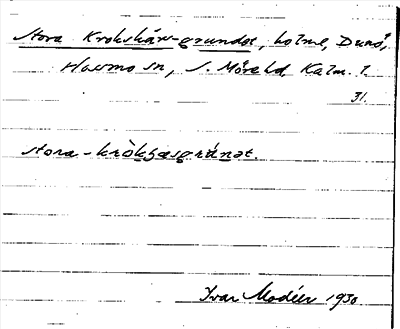 Stora Krokskärs-grundet, holme, Dunö,
Hossmo sn, S. Möre hd, Kalm. l.
31.
stora-kròkʂæsgrúnət.
Ivar Modéer 1930